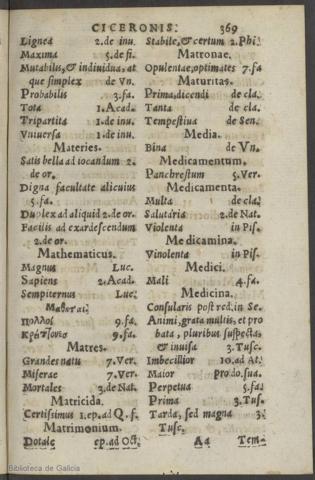 CICERONIS. 369
Lignea 2. de inu.
Maxima 5. de fi.
Mutabilis, & indiuidua, at
que simplex de Vn.
Probabilis 3. fa.
Tota 1. Acad.
Tripartita 1. de inu.
Vniuersa 1. de inu.
Materies.
Satis bella ad iocandum 2.
de or.
Digna facultate alicuius
5. fa.
Duplex ad aliquid 2. de or.
Facilis ad exardescendum
2. de or.
Mathematicus.
Magnus Luc.
Sapiens 2. Acad.
Sempiternus Luc.
πολλοί 9. fa.
9. fa.
Matres.
Grandes natu 7. Ver.
Miserae 7. Ver.
Mortales 3. de Nat.
Matricida.
Certissimus 1. ep. ad Q. f.
Matrimonium.
Dotale ep. ad Oct.
Stabile, & certum 2. Phi.
Matronae.
Opulentae, optimates 7. fa
Maturitas.
Prima, dicendi de cla.
Tanta de cla.
Tempestiua de Sen.
Media.
Bina de Vn.
Medicamentum.
Panchrestum 5. Ver.
Medicamenta.
Multa de cla.
Salutaria 2. de Nat.
Violenta in Pis.
Medicamina.
Vinolenta in Pis.
Medici.
Mali 4. fa.
Medicina.
Consularis post red. in Se.
Animi, grata multis, et pro
bata, pluribus suspecta,
& inuisa 3. Tusc.
Imbecillior 10. ad At.
Maior pro do. sua.
Perpetua 5. fa.
Prima 3. Tus.
Tarda, sed magna 3.
Tusc.
Aa Tem-
Biblioteca de Galicia